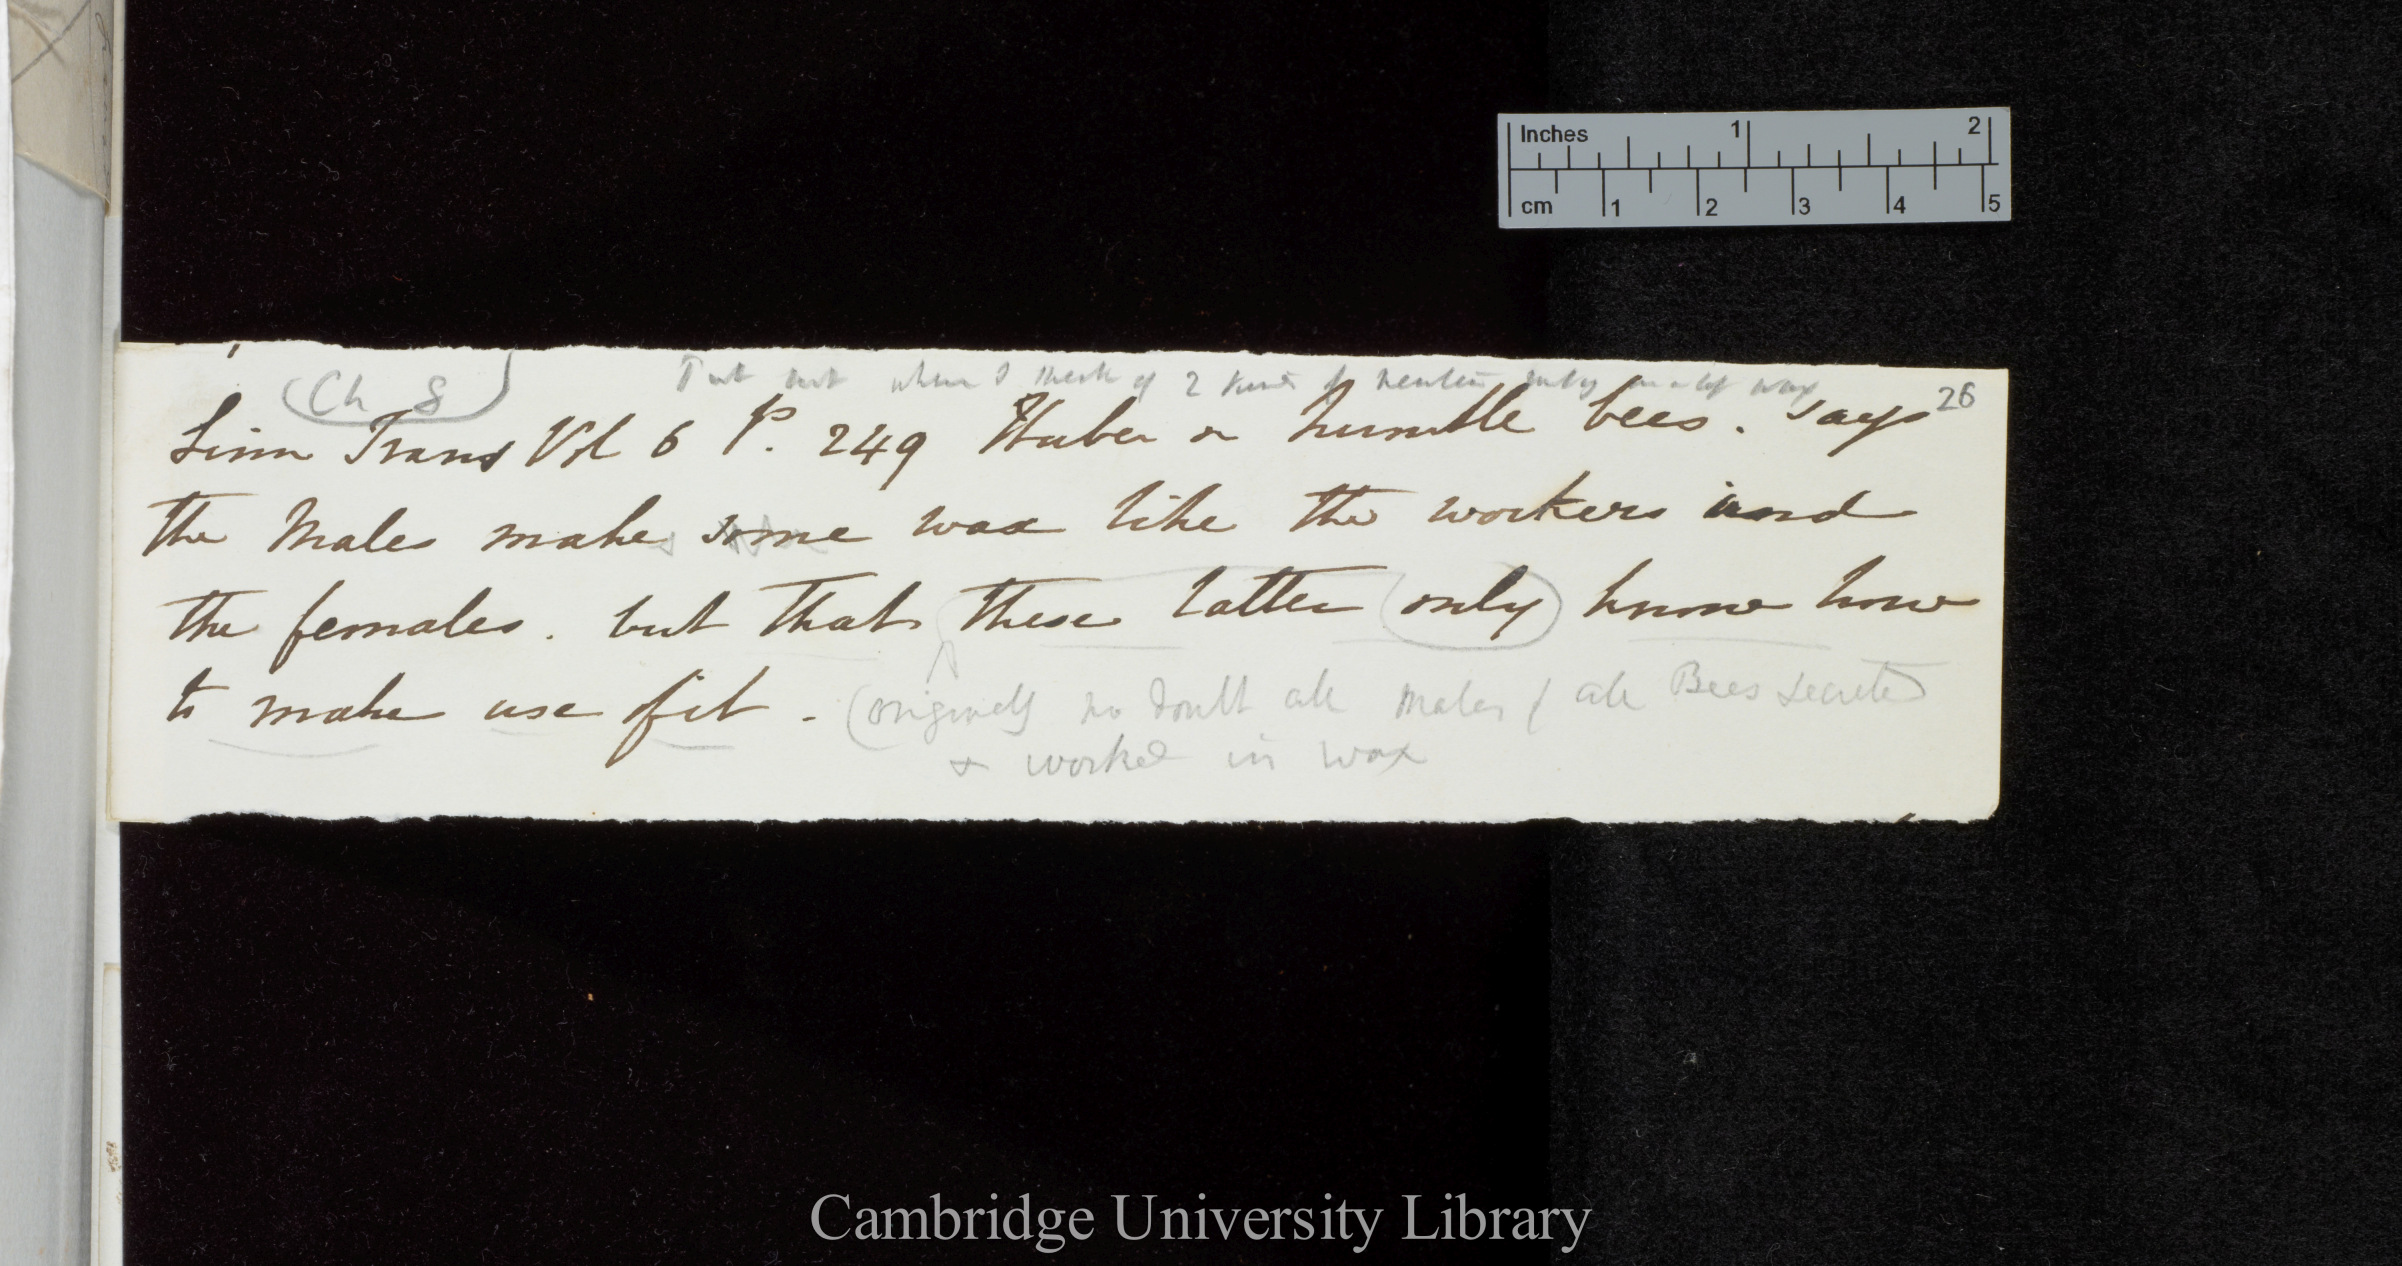 Inches 1 2
cm 1 2 3 4 5
(Ch 8)
Put out when I speak of 2 kinds of neuters only wax
26
Linn Trans Vol 6 P. 249 Huber on humble bees. says
the Males make some wax like the workers and
the females. but that these latter only know how
to make use of it. (originally no doubt all males / all Bees secreted
& worked in wax
Cambridge University Library